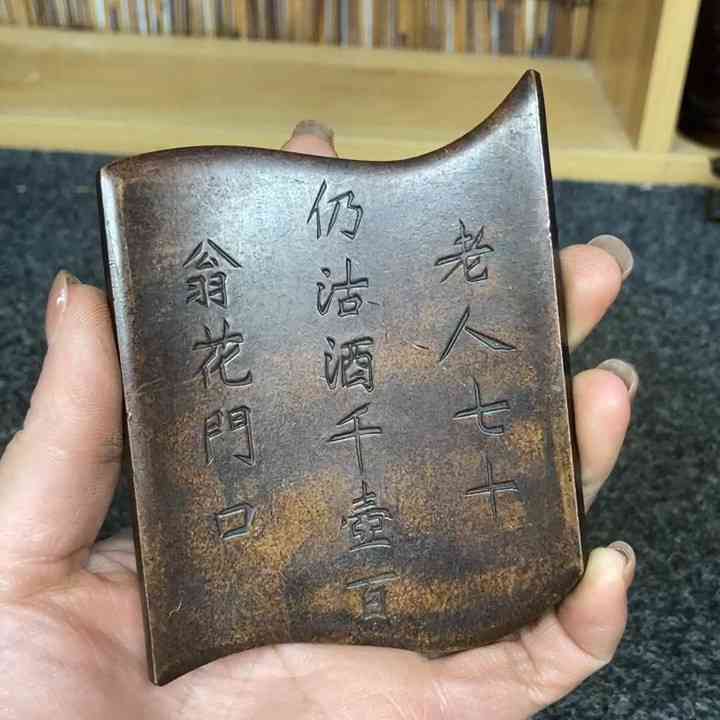 老人七十
仍沽酒千壺百
翁花門口